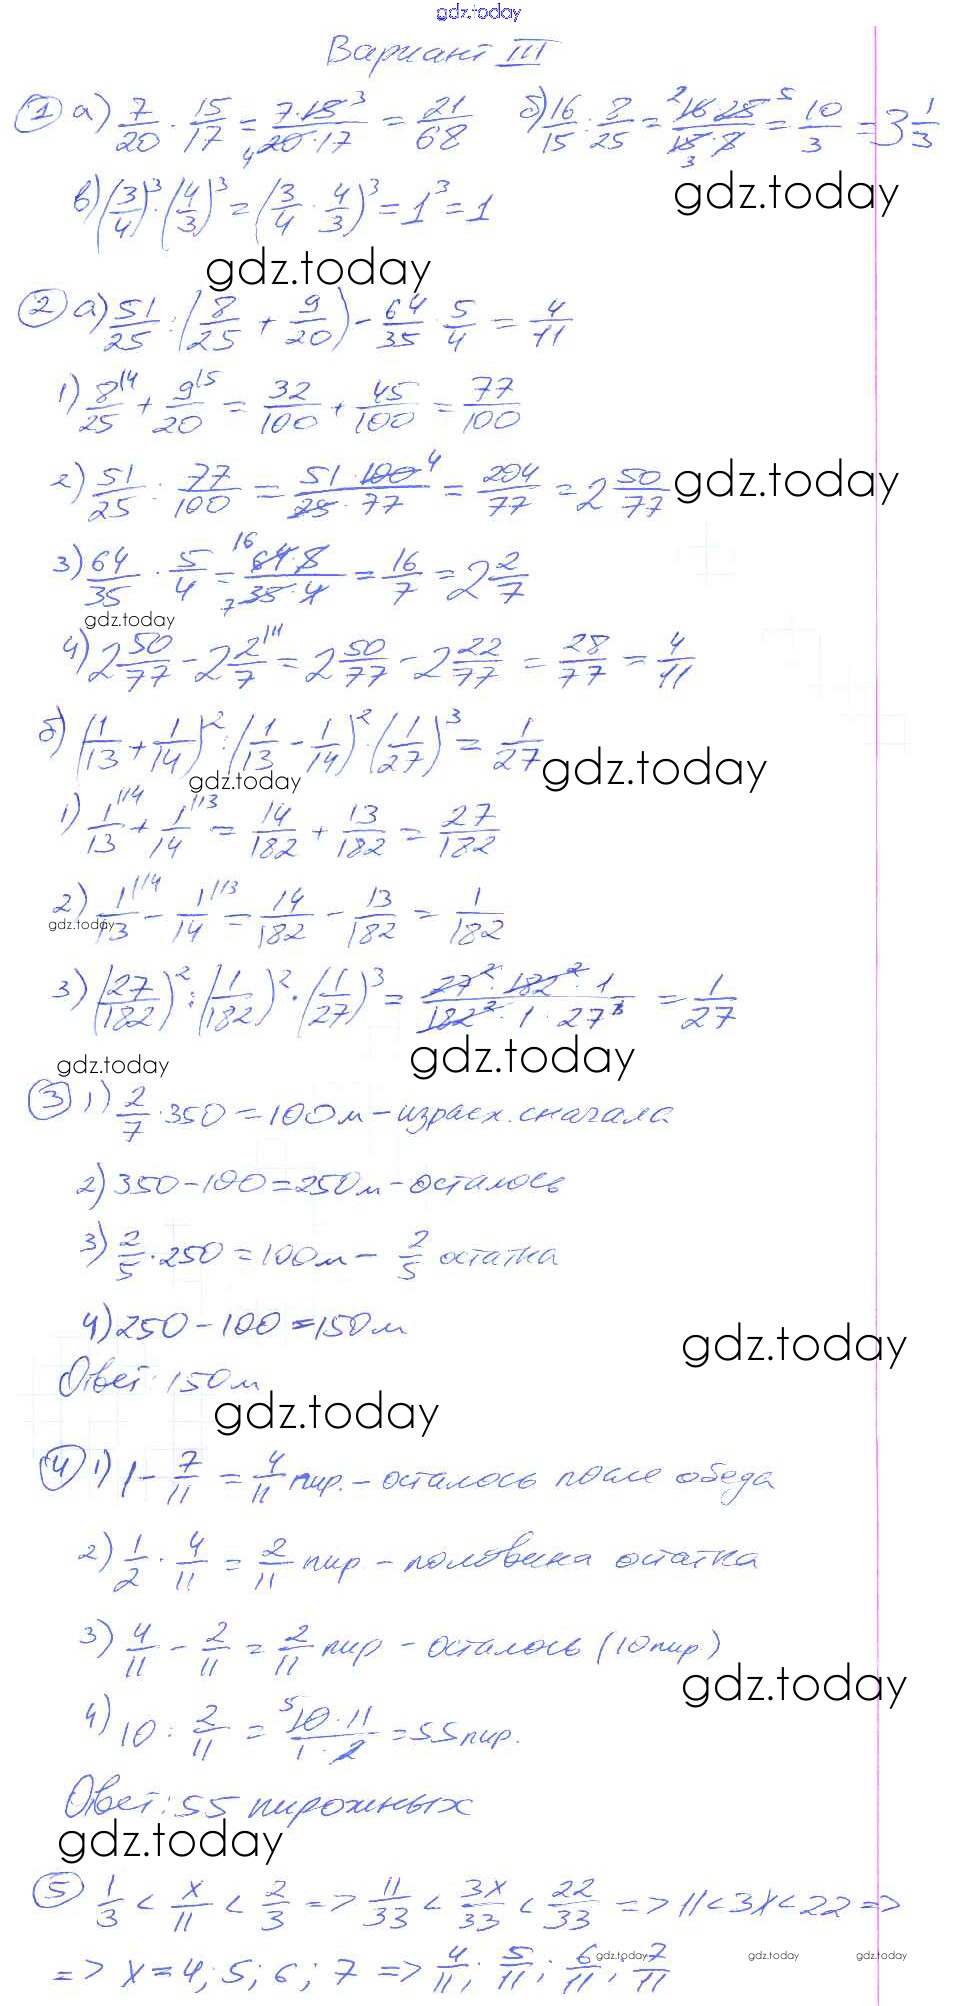 gdz.today
Вариант III
① а) 7/20 · 15/17 = 7·15³/₄20·17 = 21/68 б) 16/15 : 8/25 = ²16·25⁵/15₃·8 = 10/3 = 3 1/3
в) (3/4)³ · (4/3)³ = (3/4 · 4/3)³ = 1³ = 1
gdz.today
gdz.today
② а) 51/25 : (8/25 + 9/20) - 64/35 · 5/4 = 4/11
1) 8/25 |4 + 9/20 |5 = 32/100 + 45/100 = 77/100
2) 51/25 : 77/100 = 51·100⁴/25·77 = 204/77 = 2 50/77
gdz.today
3) 64/35 · 5/4 = ¹⁶64·8/₇35·4 = 16/7 = 2 2/7
gdz.today
4) 2 50/77 - 2 2/7 |11 = 2 50/77 - 2 22/77 = 28/77 = 4/11
б) (1/13 + 1/14)² : (1/13 - 1/14)² · (1/27)³ = 1/27
gdz.today
gdz.today
1) 1/13 |14 + 1/14 |13 = 14/182 + 13/182 = 27/182
2) 1/13 |14 - 1/14 |13 = 14/182 - 13/182 = 1/182
gdz.today
3) (27/182)² : (1/182)² · (1/27)³ = 27²·182²·1/182²·1·27³ = 1/27
gdz.today
gdz.today
③ 1) 2/7 · 350 = 100 м - израсх. сначала
2) 350 - 100 = 250 м - осталось
3) 2/5 · 250 = 100 м - 2/5 остатка
4) 250 - 100 = 150 м
gdz.today
Ответ: 150 м
gdz.today
④ 1) 1 - 7/11 = 4/11 пир. - осталось после обеда
2) 1/2 · 4/11 = 2/11 пир - половина остатка
3) 4/11 - 2/11 = 2/11 пир - осталось (10 пир)
gdz.today
4) 10 : 2/11 = ⁵10·11/1·2 = 55 пир.
Ответ: 55 пирожных
gdz.today
⑤ 1/3 < x/11 < 2/3 => 11/33 < 3x/33 < 22/33 => 11 < 3x < 22 =>
=> x = 4; 5; 6; 7 => 4/11; 5/11; 6/11; 7/11
gdz.today gdz.today gdz.today